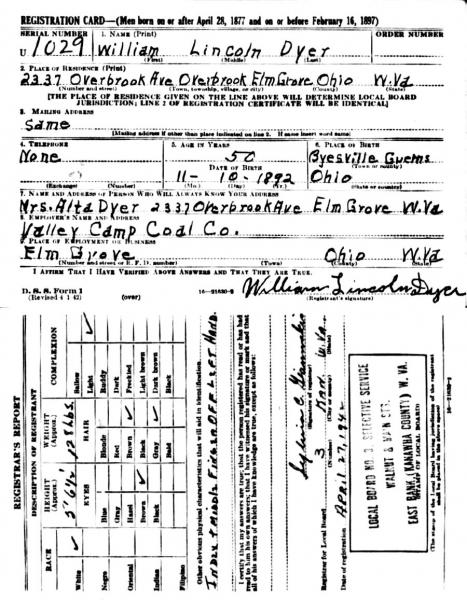 REGISTRATION CARD—(Men born on or after April 28, 1877 and on or before February 16, 1897)
SERIAL NUMBER 1. NAME (Print) ORDER NUMBER
U 1029 William Lincoln Dyer
(First) (Middle) (Last)
2. PLACE OF RESIDENCE (Print)
2337 Overbrook Ave Overbrook Elm Grove Ohio W.Va
(Number and street) (Town, township, village, or city) (County) (State)
[THE PLACE OF RESIDENCE GIVEN ON THE LINE ABOVE WILL DETERMINE LOCAL BOARD
JURISDICTION; LINE 2 OF REGISTRATION CERTIFICATE WILL BE IDENTICAL]
3. MAILING ADDRESS
Same
[Mailing address if other than place indicated on line 2. If same insert word same]
4. TELEPHONE 5. AGE IN YEARS 6. PLACE OF BIRTH
None 50 Byesville Guerns
DATE OF BIRTH (Town or county)
11- 10- 1892 Ohio
(Exchange) (Number) (Mo.) (Day) (Yr.) (State or country)
7. NAME AND ADDRESS OF PERSON WHO WILL ALWAYS KNOW YOUR ADDRESS
Mrs. Alta Dyer 2337 Overbrook Ave Elm Grove W.Va
8. EMPLOYER'S NAME AND ADDRESS
Valley Camp Coal Co.
9. PLACE OF EMPLOYMENT OR BUSINESS
Elm Grove Ohio W.Va
(Number and street or R. F. D. number) (Town) (County) (State)
I AFFIRM THAT I HAVE VERIFIED ABOVE ANSWERS AND THAT THEY ARE TRUE.
D. S. S. Form 1 William Lincoln Dyer
(Revised 4 1 42) (over) 16—21630-2 (Registrant's signature)
REGISTRAR'S REPORT
DESCRIPTION OF REGISTRANT
RACE HEIGHT (Approx.) WEIGHT (Approx.) COMPLEXION
5' 6½" 128 lbs.
EYES HAIR
White ✓ Blue Blonde Sallow
Light ✓
Negro Gray Red Ruddy
Hazel Brown Dark
Oriental Brown ✓ Black Freckled
Indian Black Gray ✓ Light brown
Bald Dark brown
Filipino Black
Other obvious physical characteristics that will aid in identification
Index & Middle Finger Off Left Hand
I certify that my answers are true; that the person registered has read or has had
read to him his own answers; that I have witnessed his signature or mark and that
all of his answers of which I have knowledge are true, except as follows:
Registrar for Local Board 3 Kan W.Va.
(Number) (City or county) (State)
Date of registration April 27, 1942
LOCAL BOARD NO. 3, SELECTIVE SERVICE
WALNUT & MAIN STS.
EAST BANK (KANAWHA COUNTY) W. VA.
(STAMP OF LOCAL BOARD)
(The stamp of the Local Board having jurisdiction of the registrant
shall be placed in the above space)